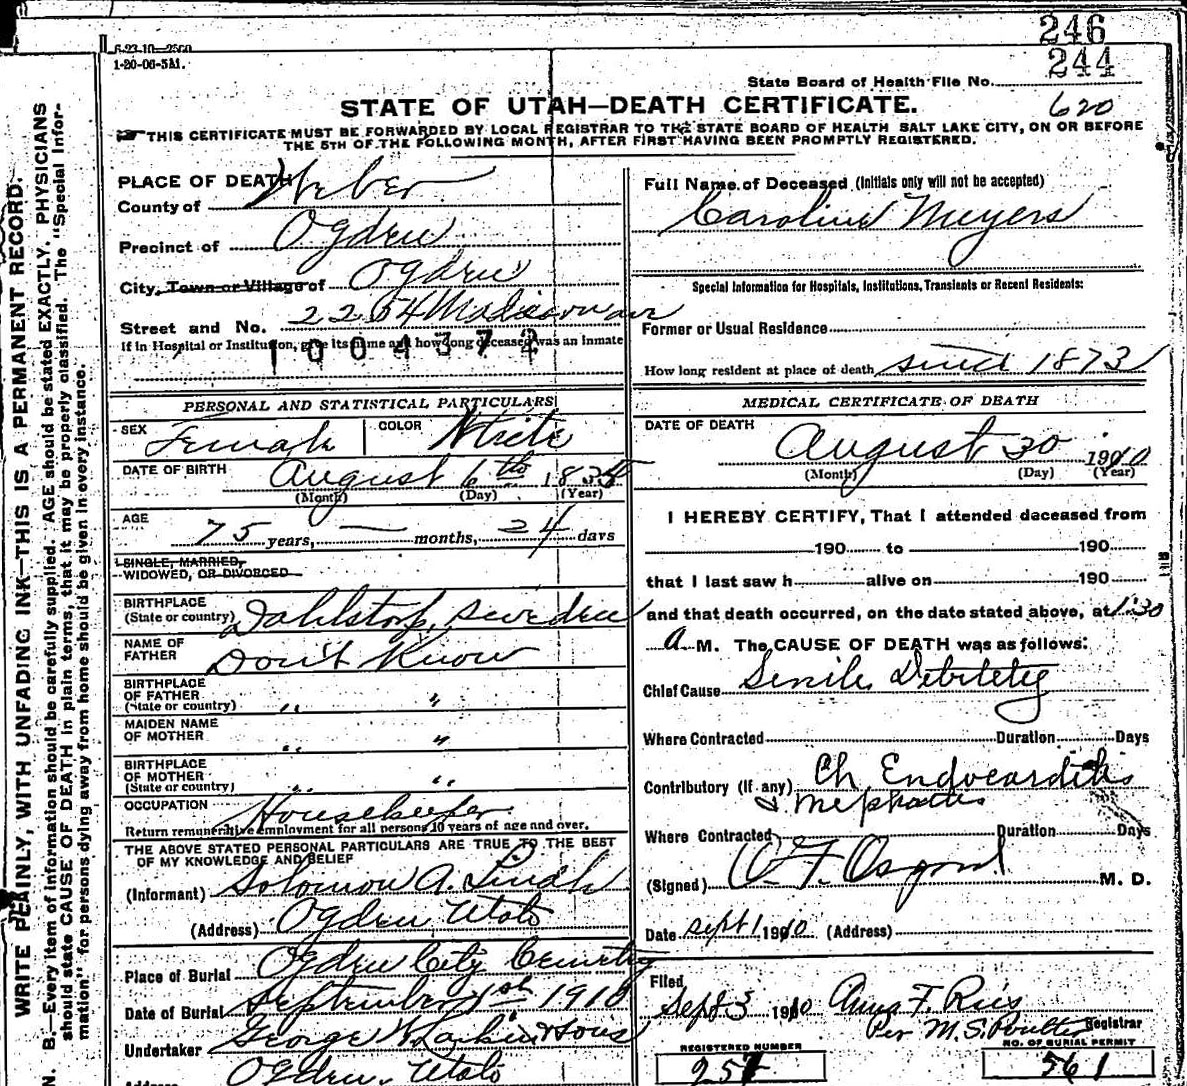 246
6-23-10—25
1-20-06-5M.
244
State Board of Health File No.
620
STATE OF UTAH—DEATH CERTIFICATE.
THIS CERTIFICATE MUST BE FORWARDED BY LOCAL REGISTRAR TO THE STATE BOARD OF HEALTH SALT LAKE CITY, ON OR BEFORE
THE 5TH OF THE FOLLOWING MONTH, AFTER FIRST HAVING BEEN PROMPTLY REGISTERED.
WRITE PLAINLY, WITH UNFADING INK—THIS IS A PERMANENT RECORD.
N. B. — Every item of information should be carefully supplied. AGE should be stated EXACTLY. PHYSICIANS
should state CAUSE OF DEATH in plain terms, that it may be properly classified. The "Special Infor-
mation" for persons dying away from home should be given in every instance.
PLACE OF DEATH
County of Weber
Precinct of Ogden
City, Town or Village of Ogden
Street and No. 2254 Madison av
If in Hospital or Institution, give its name and how long deceased was an inmate
1004372
PERSONAL AND STATISTICAL PARTICULARS
SEX Female COLOR White
DATE OF BIRTH August 6th 1835
(Month) (Day) (Year)
AGE 75 years, — months, 24 days
SINGLE, MARRIED,
WIDOWED, OR DIVORCED
BIRTHPLACE
(State or country) Dahlstorp, Sweden
NAME OF
FATHER Don't Know
BIRTHPLACE
OF FATHER
(State or country) " "
MAIDEN NAME
OF MOTHER " "
BIRTHPLACE
OF MOTHER
(State or country) " "
OCCUPATION Housekeeper
Return remunerative employment for all persons 10 years of age and over.
THE ABOVE STATED PERSONAL PARTICULARS ARE TRUE TO THE BEST
OF MY KNOWLEDGE AND BELIEF
(Informant) Solomon A. Lindh
(Address) Ogden Utah
Place of Burial Ogden City Cemetry
Date of Burial September 1st 1910
Undertaker George W Larkin & Sons
Address Ogden, Utah
Full Name of Deceased (Initials only will not be accepted)
Caroline Meyers
Special Information for Hospitals, Institutions, Transients or Recent Residents:
Former or Usual Residence
How long resident at place of death since 1873
MEDICAL CERTIFICATE OF DEATH
DATE OF DEATH
August 30 1910
(Month) (Day) (Year)
I HEREBY CERTIFY, That I attended deceased from
190 to 190
that I last saw h alive on 190
and that death occurred, on the date stated above, at 1:30
A M. The CAUSE OF DEATH was as follows:
Chief Cause Senile Debility
Where Contracted Duration Days
Contributory (If any) Ch Endocarditis
& Nephritis
Where Contracted Duration Days
(Signed) O. F. Osgood M. D.
Date Sept 1 1910 (Address)
Filed
Sept 3 1910 Anna F. Ries
Per M. S. Poulter Registrar
REGISTERED NUMBER
257
NO. OF BURIAL PERMIT
561